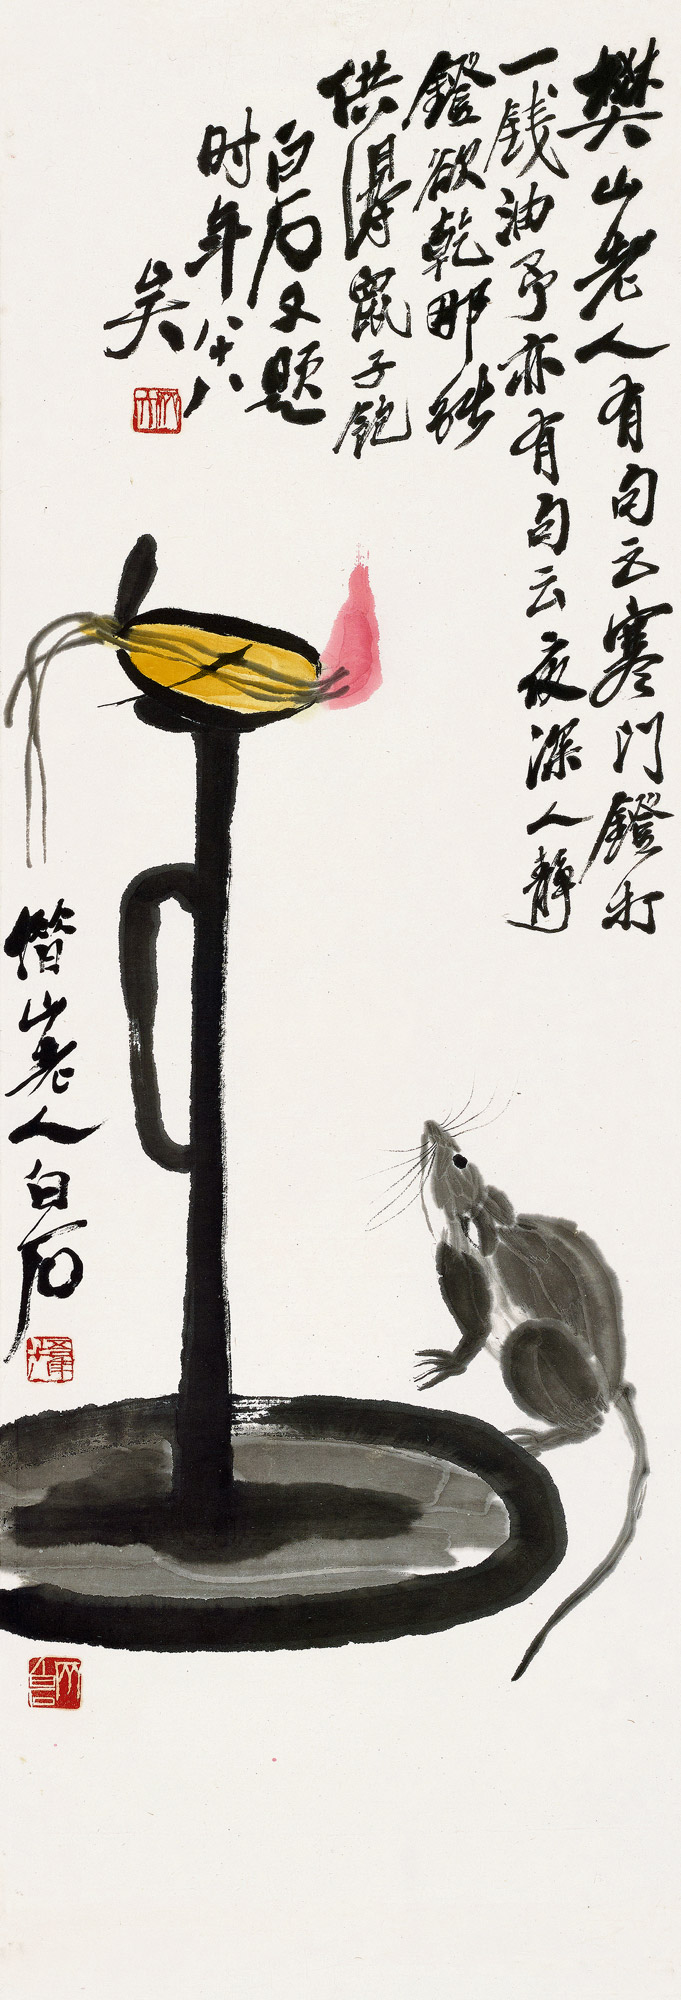 樊山老人有句云寒门鐙打
一钱油予亦有句云夜深人静
鐙欲乾那能
供得鼠子飽
白石又题
时年八十八
矣
借山老人白石